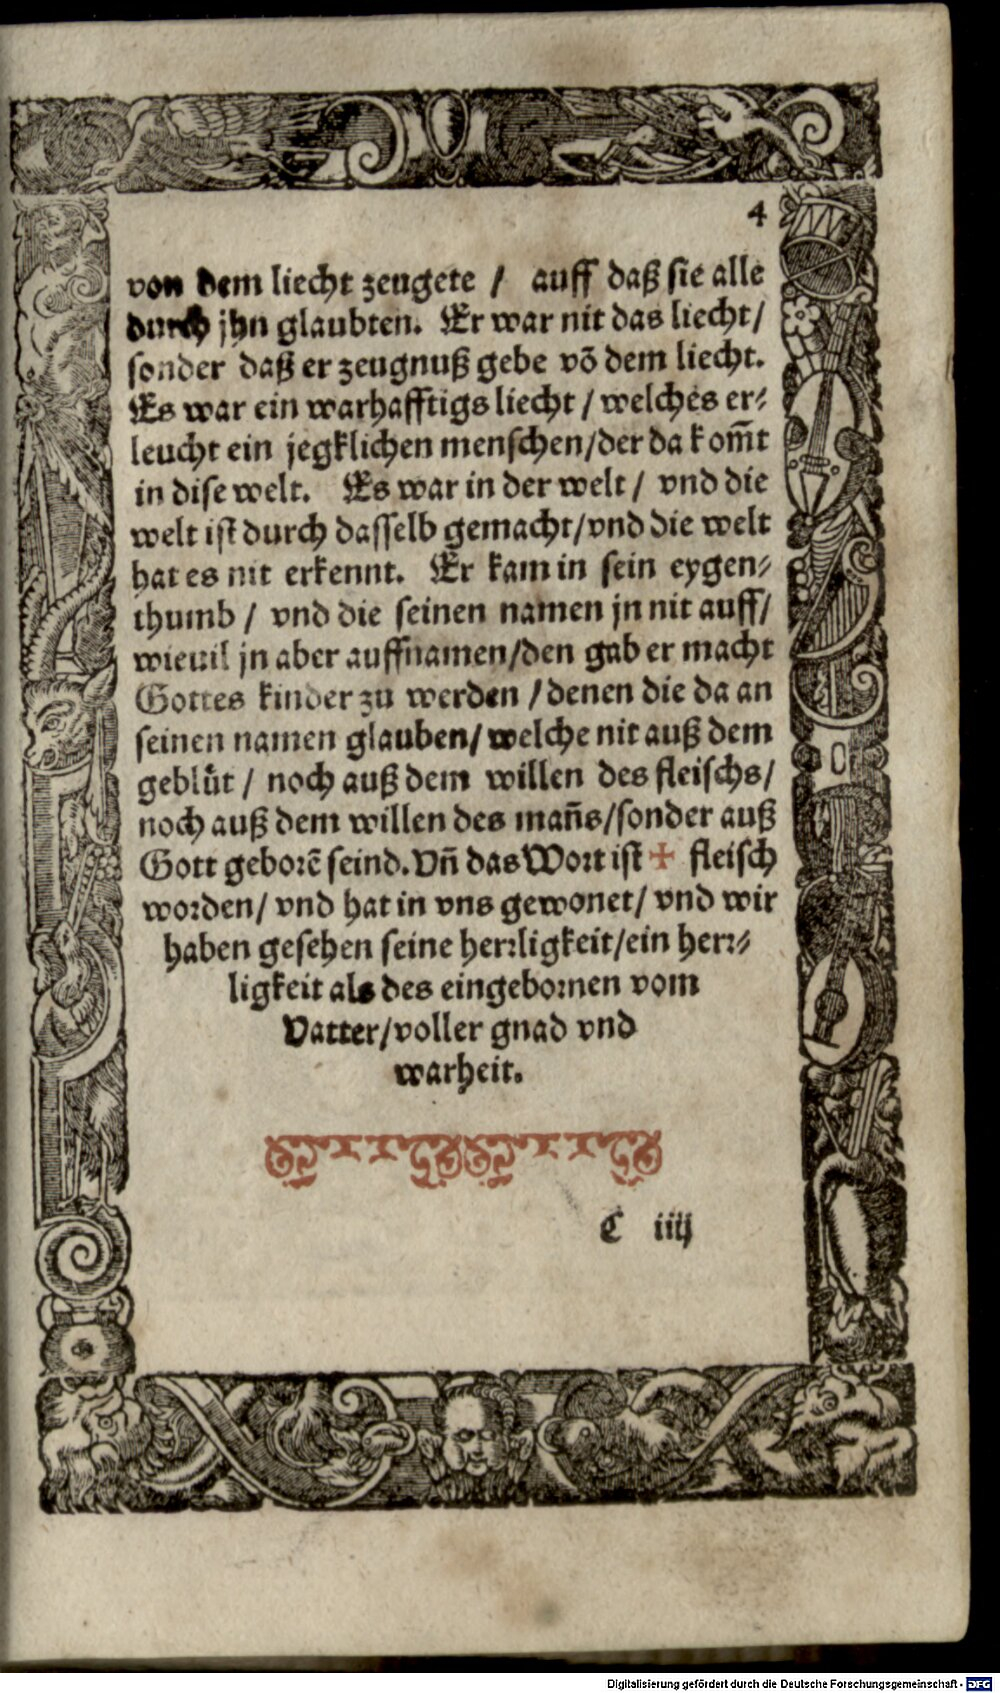 4
von dem liecht zeugete / auff daß sie alle
durch jhn glaubten. Er war nit das liecht/
sonder daß er zeugnuß gebe võ dem liecht.
Es war ein warhafftigs liecht / welches er⸗
leucht ein jegklichen menschen/der da kom̃t
in dise welt. Es war in der welt / vnd die
welt ist durch dasselb gemacht/vnd die welt
hat es nit erkennt. Er kam in sein eygen⸗
thumb / vnd die seinen namen jn nit auff/
wieuil jn aber auffnamen/den gab er macht
Gottes kinder zu werden / denen die da an
seinen namen glauben/ welche nit auß dem
geblüt / noch auß dem willen des fleischs/
noch auß dem willen des mañs/sonder auß
Gott geborẽ seind. Vñ das Wort ist ✠ fleisch
worden/ vnd hat in vns gewonet/ vnd wir
haben gesehen seine herrligkeit/ein herr⸗
ligkeit als des eingebornen vom
Vatter/voller gnad vnd
warheit.
C iiij
Digitalisierung gefördert durch die Deutsche Forschungsgemeinschaft - DFG